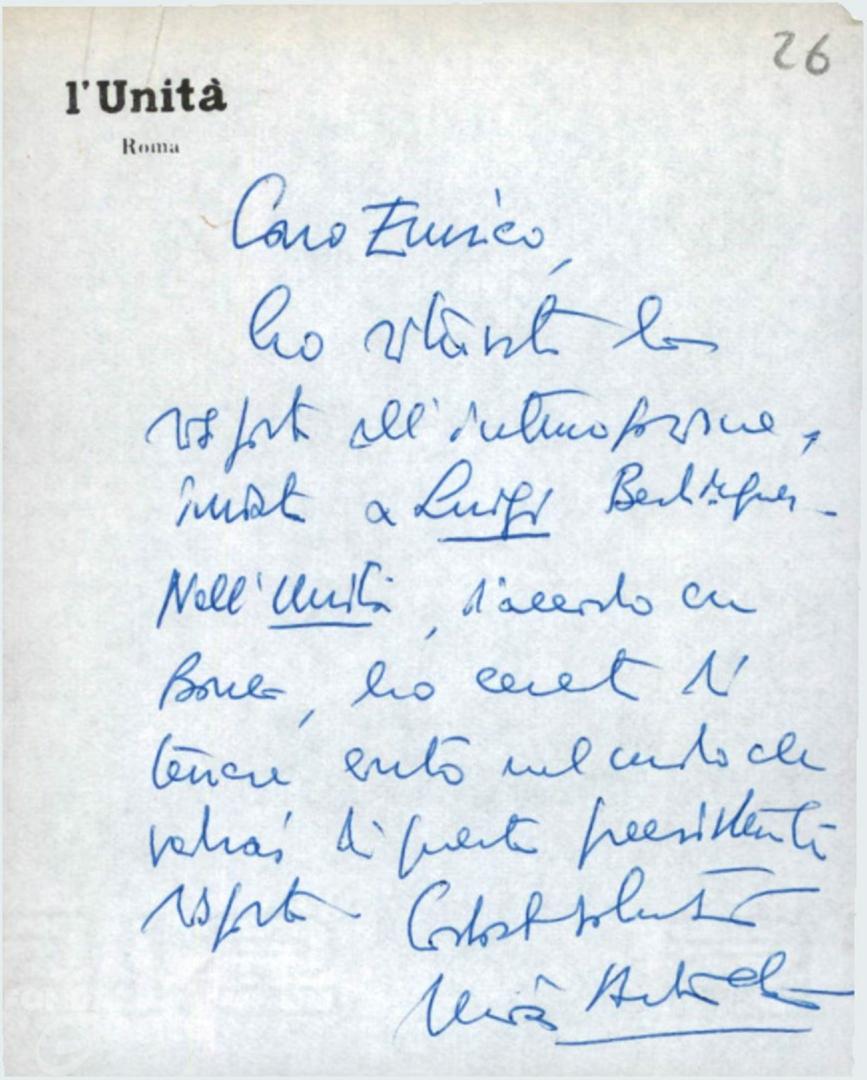 26
l'Unità
Roma
Caro Enrico,
ho vista la
risposta all'interrogazione,
inviata a Luigi Berlinguer.
Nell'Unità, d'accordo con
ho cercato di
tenere conto nel modo che
vedrai di questa preesistente
risposta. Cordiali saluti